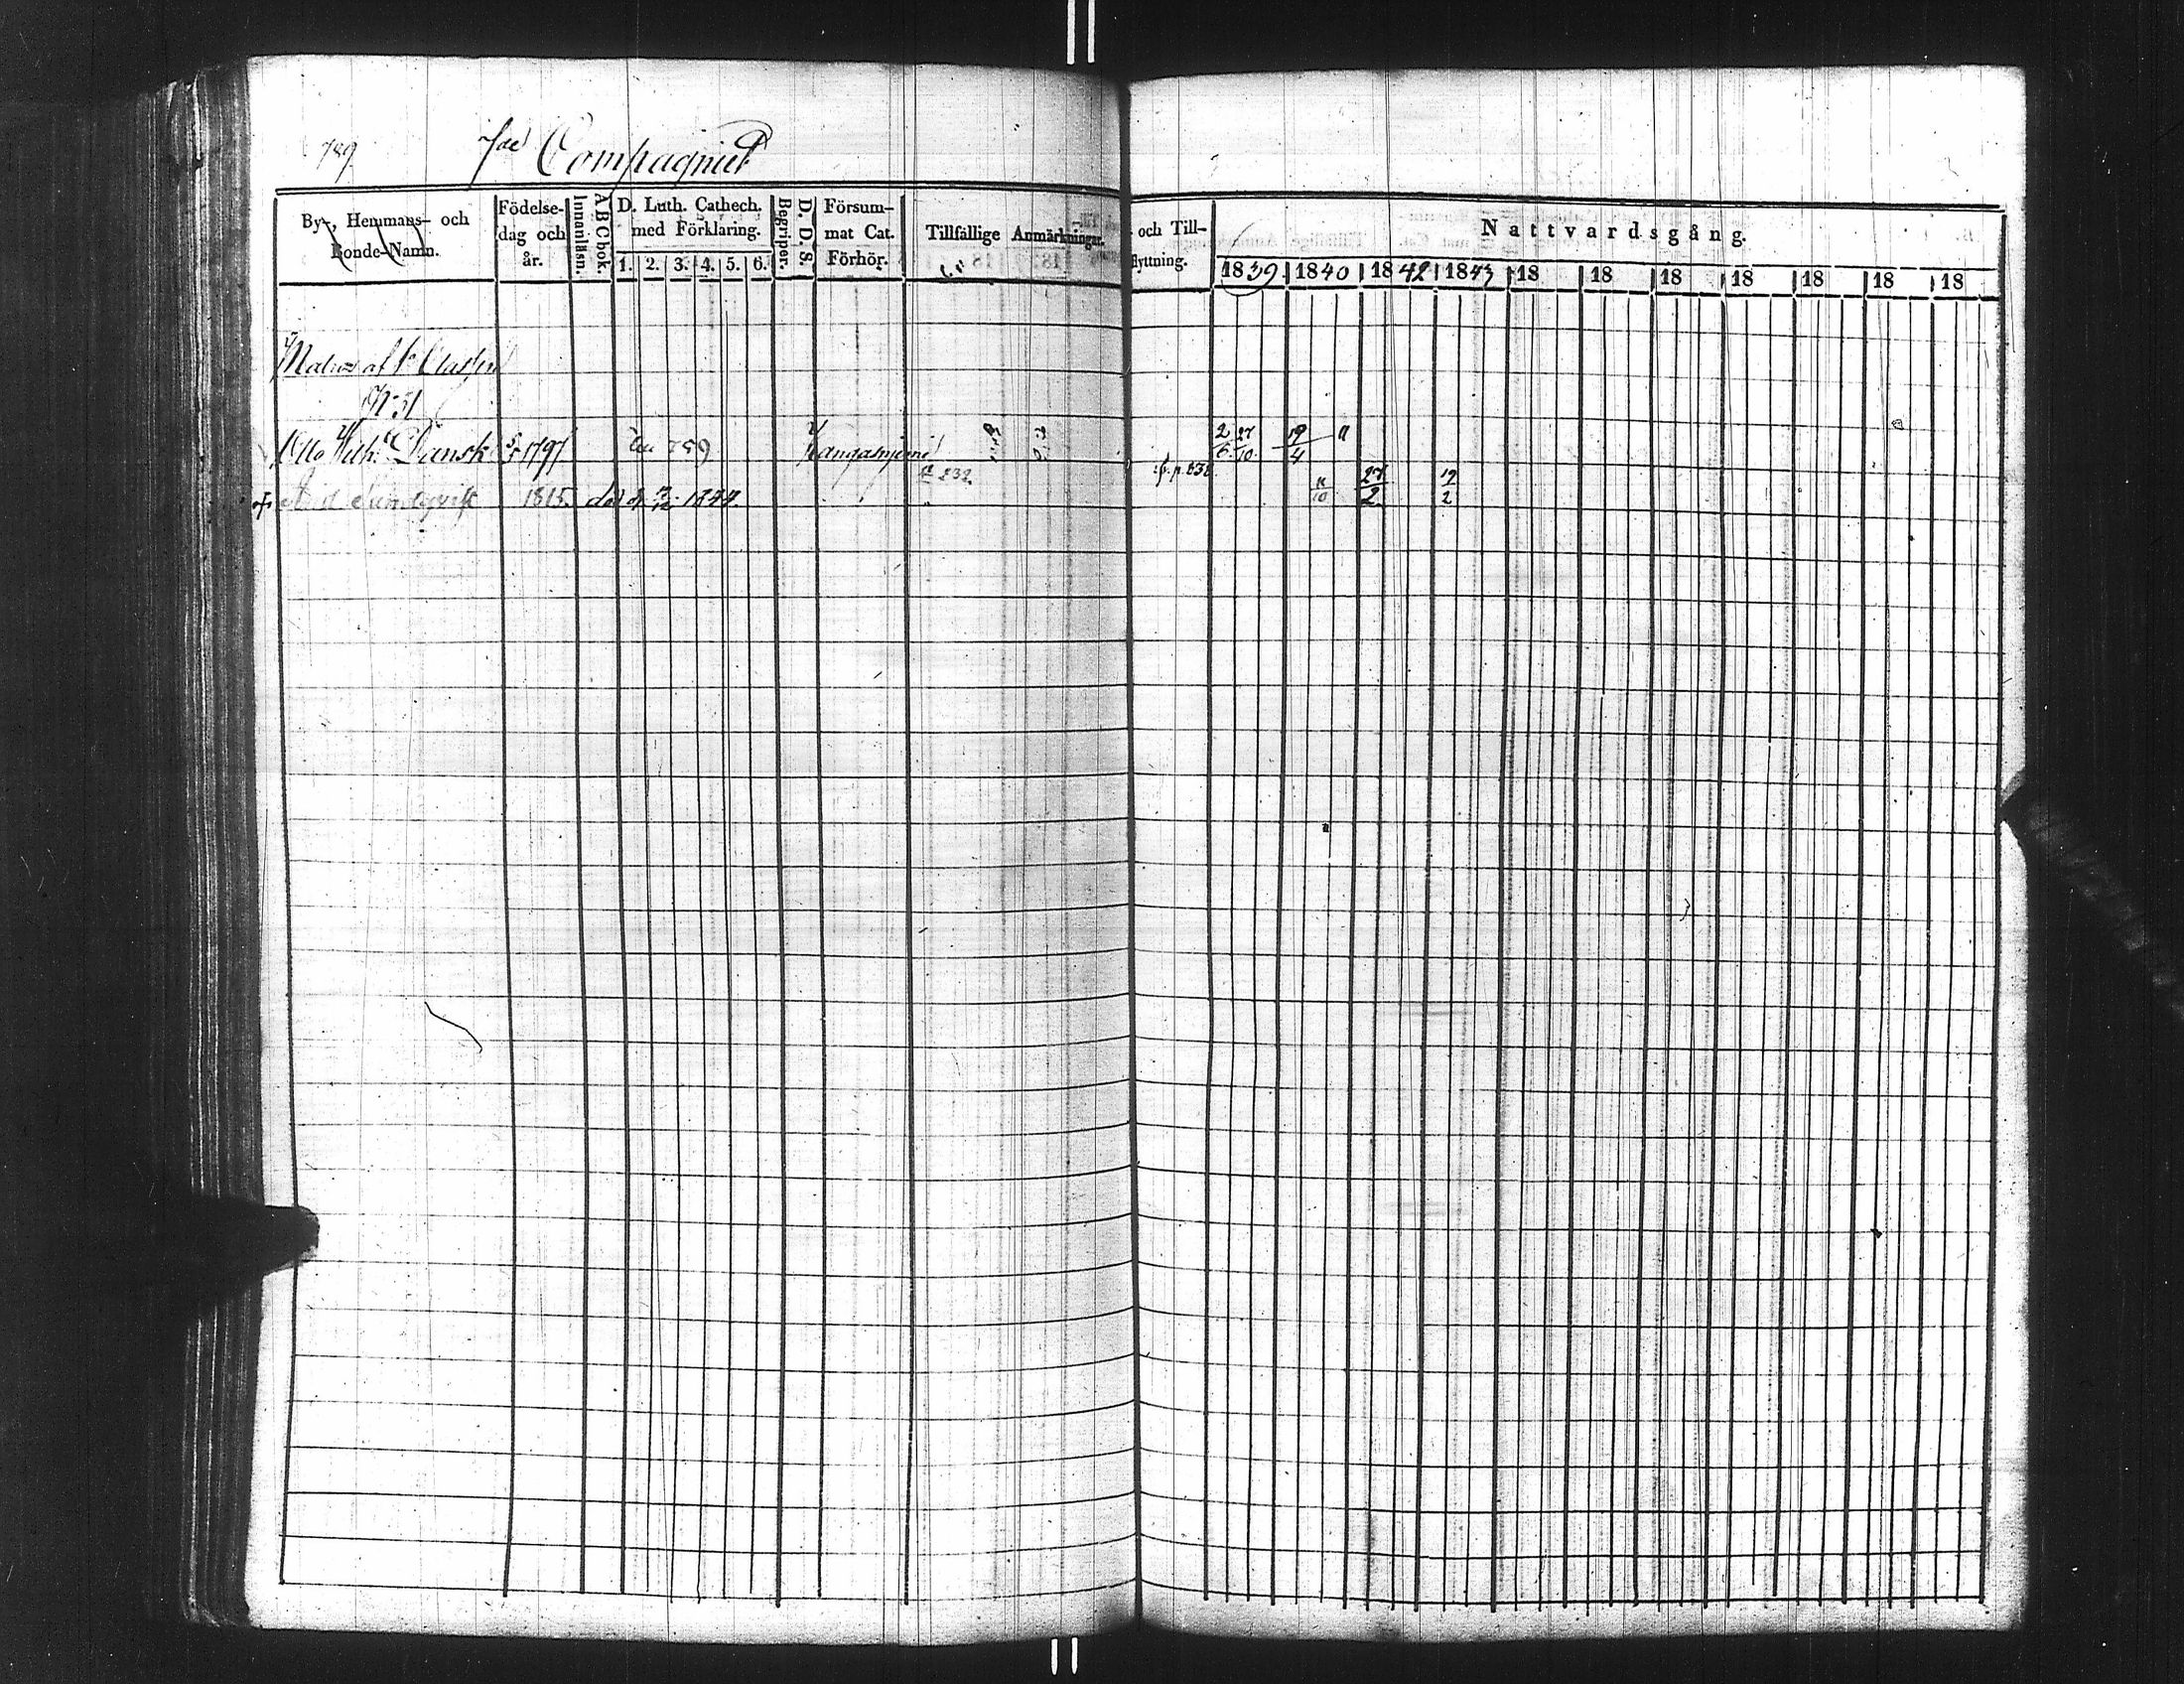 789 7de Compagniet
By-, Hemmans- och Bonde-Namn.
Födelse-dag och år.
Innanläsn.
A B C bok.
D. Luth. Cathech. med Förklaring.
1. 2. 3. 4. 5. 6.
Begriper.
D. D. S.
Försum-mat Cat. Förhör.
Tillfällige Anmärkningar.
och Till-
flyttning.
Nattvardsgång.
1839 1840 1842 1843 18 18 18 18 18 18 18
Matros af 1a Classen
No 31
Otto Wilh. Dansk 5/5 1797 759 Kangasniemi 2/6 27/10 19/4
f. p. 838
1815 död d. 1844. 11/10 27/2 12/2